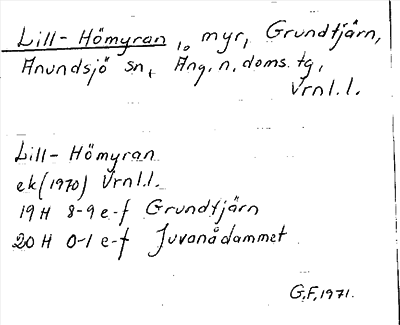 Lill-Hömyran, myr, Grundtjärn,
Anundsjö sn, Ång. n. doms. tg,
Vrnl.l.
Lill-Hömyran
ek (1970) Vrnl.l.
19 H 8-9 e-f Grundtjärn
20 H 0-1 e-f Juvanådammet
G.F, 1971.